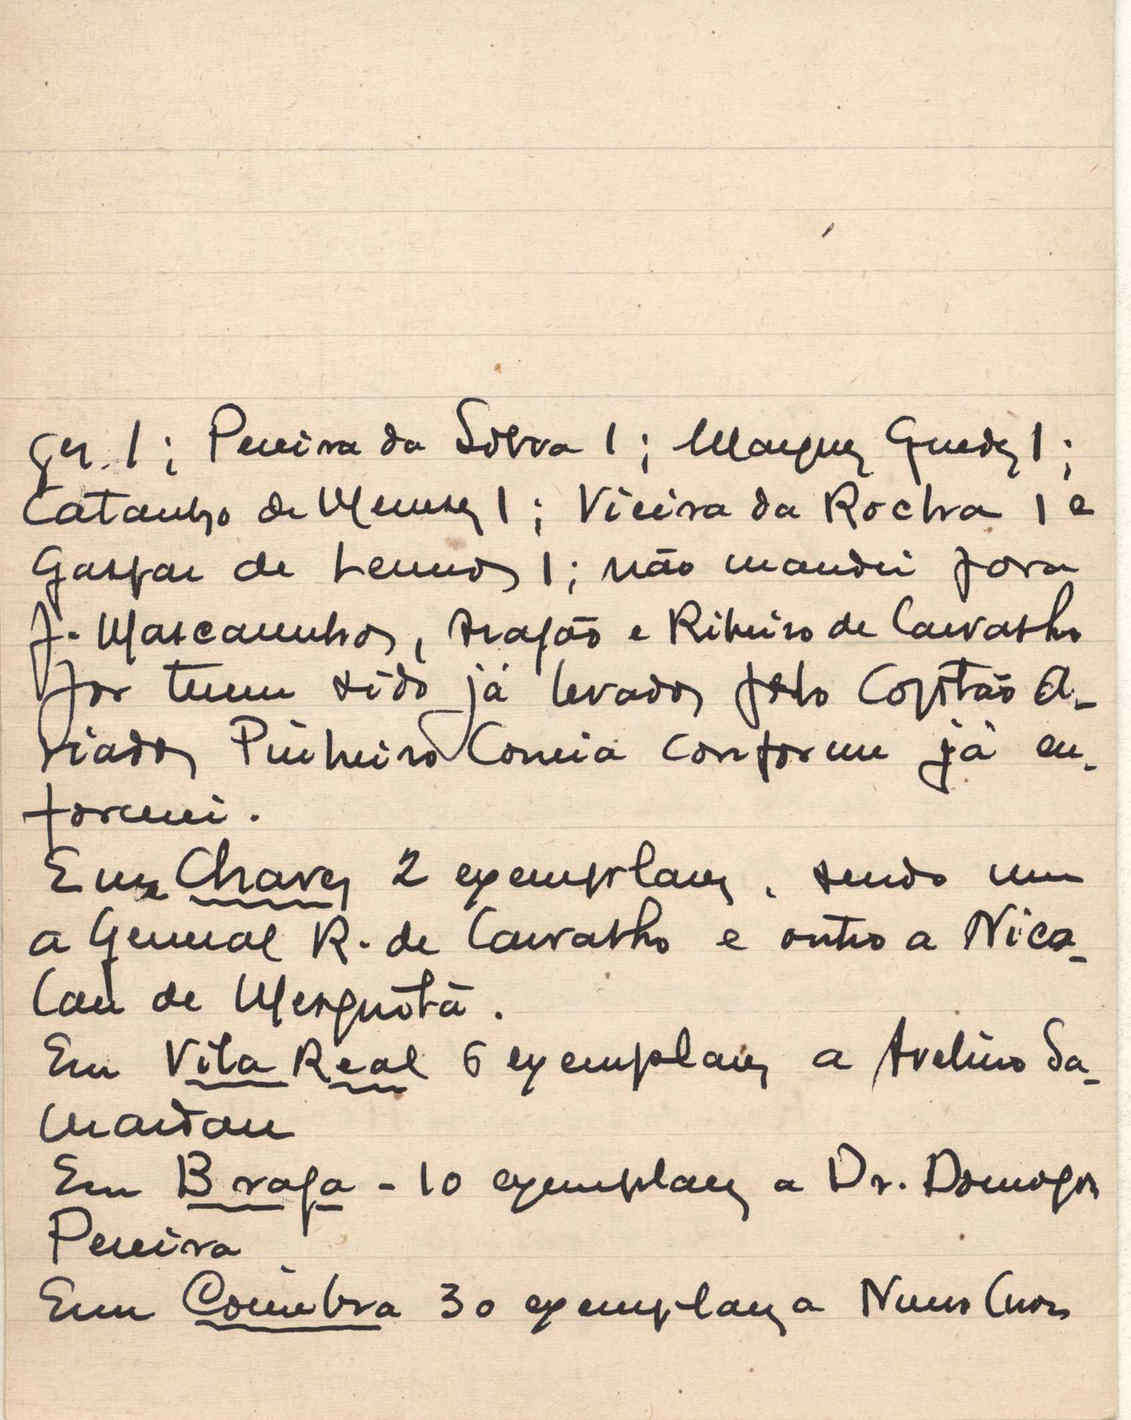 ges 1; Pereira da Silva 1; Marques Guedes 1;
Catanho de Meneses 1; Vieira da Rocha 1 e
Gaspar de Lemos 1; não mandei para
J. Mascarenhas, Aragão e Ribeiro de Carvalho
por terem sido já levados pelo Capitão A-
Pinheiro Correia conforme já en-
formei.
Em Chaves 2 exemplares, sendo um
a General R. de Carvalho e outro a Nico-
lau de Mesquita.
Em Vila Real 6 exemplares a Avelino Sa-
mardan
Em Braga - 10 exemplares a Dr. Domingos
Pereira
Em Coimbra 30 exemplares a Nuno